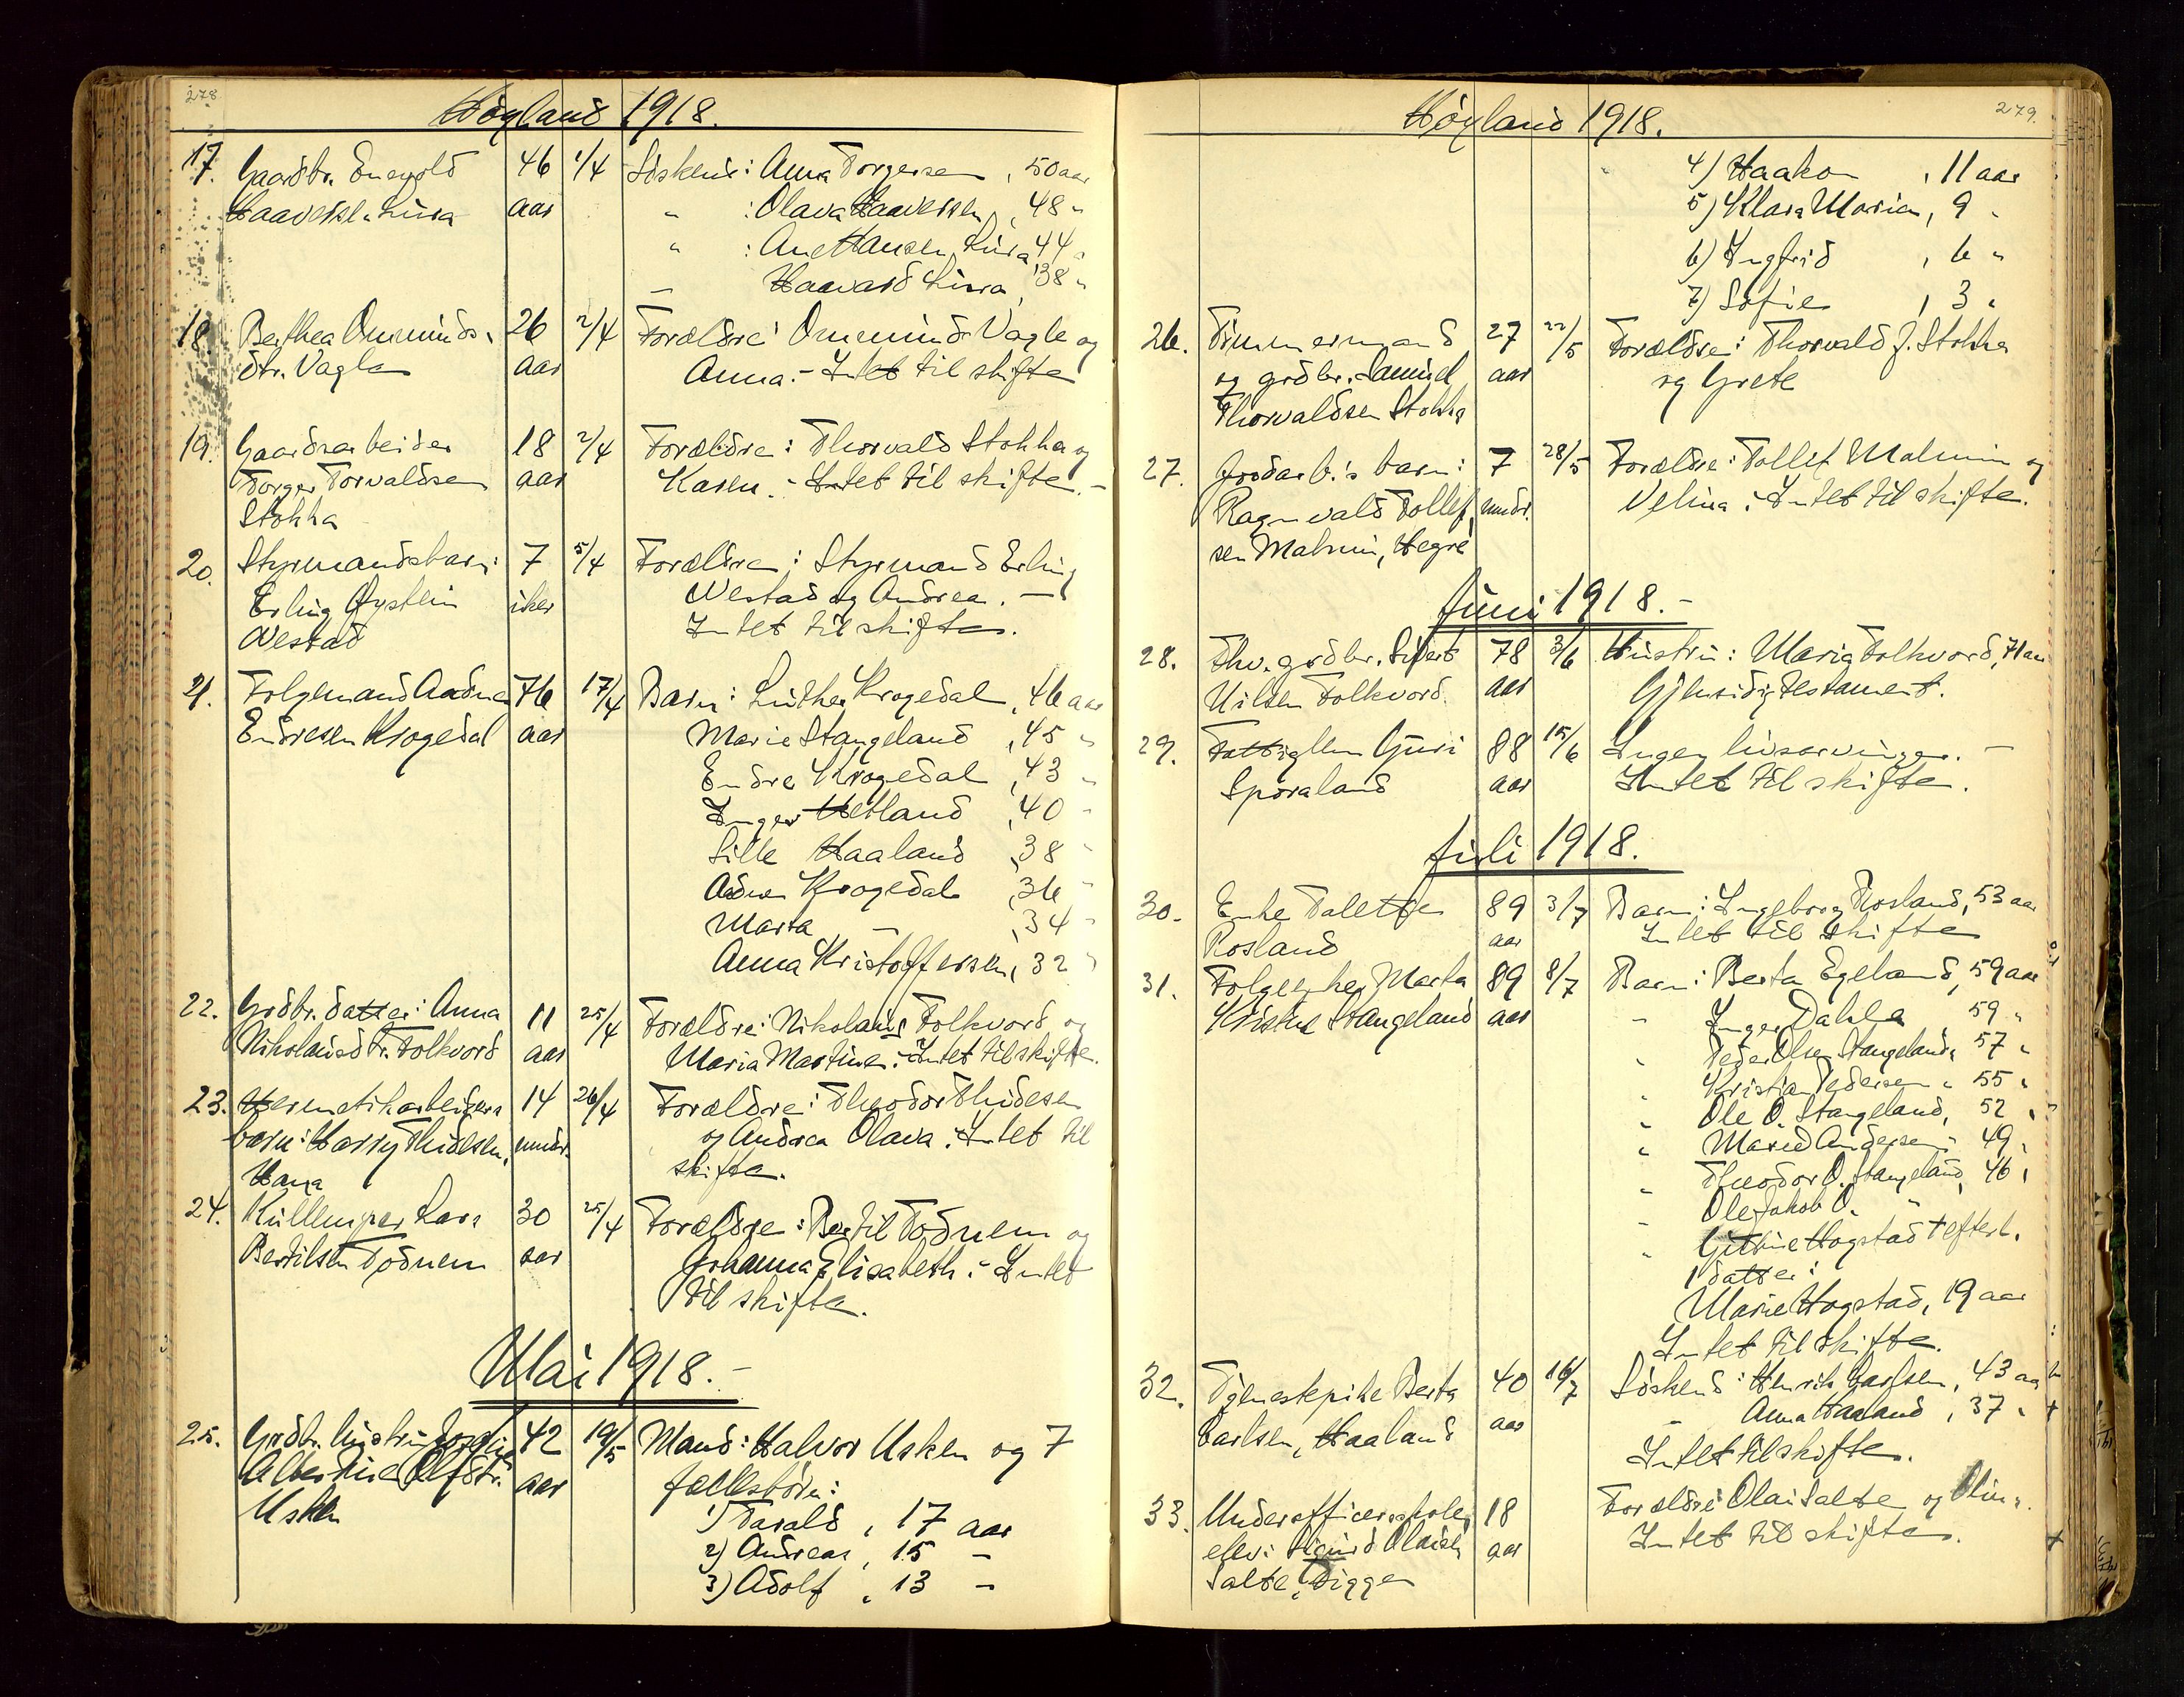 278
Høyland 1918.
17. Gaardbr. Enevold 46 1/4 Søskend: Anna Torgersen, 50 aar
Haaversen Lura aar " : Olava Haaversen, 48 "
" : Ane Hansen Lura 44 "
" Haavard Lura, 38 "
18. Berthea Ommunds- 26 2/4 Forældre: Ommund Vagle og
dtr. Vagle aar Anna. - Intet til skifte
19. Gaardsarbeider 18 2/4 Forældre: Thorvald Stokka og
Torger Torvaldsen aar Karen. - Intet til skifte. -
Stokka
20. Styrmandsbarn: 7 5/4 Forældre: Styrmand Erling
Erling Øystein uker Westad og Andrea. -
Westad Intet til skifte.
21. Folgemand Aadne 76 17/4 Barn: Luther Krogedal, 46 aar
Endresen Krogedal aar Marie Stangeland, 45 "
Endre Krogedal, 43 "
Inger Hetland, 40 "
Sille Haaland, 38 "
Aadne Krogedal, 36 "
Marta -, 34 "
Anna Kristoffersen, 32 "
22. Grdbr. datter: Anna 11 25/4 Forældre: Nikolaus Folkvord og
Nikolausdtr. Folkvord aar Maria Martine. Intet til skifte.
23. Hermetikarbeiders 14 26/4 Forældre: Theodor Thidesen
barn: Harry Thidesen, mndr. og Andrea Olava. Intet til
Hana skifte.
24. Kullemper Lars 30 25/4 Forældre: Bertil Todnem og
Bertilsen Todnem aar Johanna Elisabeth. - Intet
til skifte.
Mai 1918. -
25. Grdbr. hustru 42 19/5 Mand: Halvor Usken og 7
Albertine Olfsdtr. aar fællesbørn:
Usken 1) Tarald, 17 aar
2) Andreas, 15 -
3) Adolf, 13 -
279.
Høyland 1918.
4) Haakon, 11 aar
5) Klara Maria, 9 "
6) Ingfrid, 6 "
7) Sofie, 3 "
26. Tømmermand 27 22/5 Forældre: Thorvald J. Stokka
og grdbr. Samuel aar og Grete
Thorvaldsen Stokka
27. Jordarb.'s barn: 7 28/5 Forældre: Tollef Malmin og
Ragnvald Tollef- mndr. Velina. Intet til skifte.
sen Malmin, Hegre
Juni 1918. -
28. Fhv. grdbr. Sivert 78 3/6 Hustru: Maria Folkvord, 71 aar
Nilsen Folkvord. aar Gjensidig testament.
29. Fattiglem Guri 88 15/6 Ingen livsarvinger. -
Sporaland aar Intet til skifte.
Juli 1918.
30. Enke Talette 89 3/7 Barn: Ingeborg Rosland, 53 aar
Rosland aar Intet til skifte
31. Folgeenke Marta 89 8/7 Barn: Berta Egeland, 59 aar
Kristine Stangeland aar " Inger Dahle 59 "
" Peder Olsen Stangeland, 57 "
" Kristian Pedersen " 55 "
" Ole O. Stangeland, 52 "
" Marie Andersen " 49 "
" Theodor O. Stangeland, 46 "
" Ole Jakob O. "
" Guttine Hogstad † efterl.
1 datter:
Marie Hogstad, 19 aar
Intet til skifte.
32. Tjenestepike Berta 40 16/7 Søskend: Henrik Carlsen, 43 aar
Carlsen, Haaland aar - Anna Haaland, 37 "
Intet til skifte.
33. Underofficersskole- 18 Forældre: Olai Salte og
elev: Sigurd Olaisen aar Intet til skifte.
Salte,